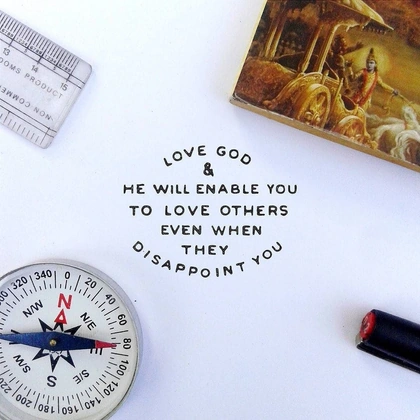 LOVE GOD
&
HE WILL ENABLE YOU
TO LOVE OTHERS
EVEN WHEN
THEY
DISAPPOINT YOU
13 14 15
OOMS PRODUCT
NON COMME
320 340 0 20 40 60 80 100 120 140 160 180 200 220
N
N/E
E
S/E
S
S/W
N/W